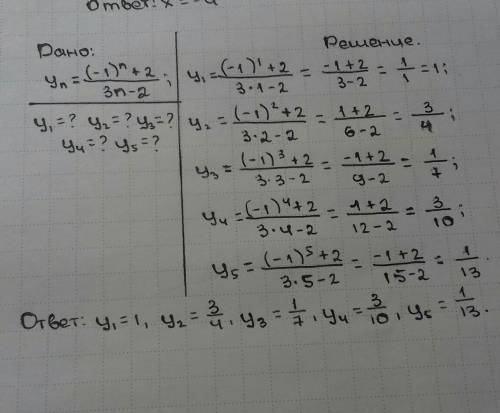 Ответ: x = -4
Дано:
yₙ = ((-1)ⁿ + 2)/(3n - 2);
y₁ = ? y₂ = ? y₃ = ?
y₄ = ? y₅ = ?
Решение.
y₁ = ((-1)¹ + 2)/(3·1 - 2) = (-1 + 2)/(3 - 2) = 1/1 = 1;
y₂ = ((-1)² + 2)/(3·2 - 2) = (1 + 2)/(6 - 2) = 3/4;
y₃ = ((-1)³ + 2)/(3·3 - 2) = (-1 + 2)/(9 - 2) = 1/7;
y₄ = ((-1)⁴ + 2)/(3·4 - 2) = (1 + 2)/(12 - 2) = 3/10;
y₅ = ((-1)⁵ + 2)/(3·5 - 2) = (-1 + 2)/(15 - 2) = 1/13.
Ответ: y₁ = 1, y₂ = 3/4, y₃ = 1/7, y₄ = 3/10, y₅ = 1/13.